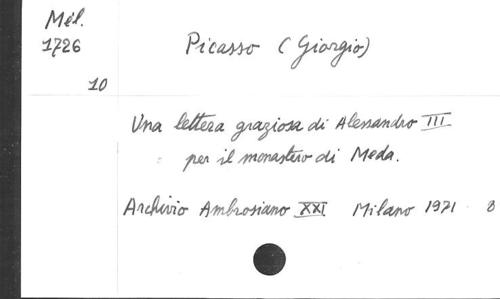 Mél.
1726
10
Picasso (Giorgio)
Una lettera graziosa di Alessandro III
per il monastero di Meda.
Archivio Ambrosiano XXI Milano 1971 8